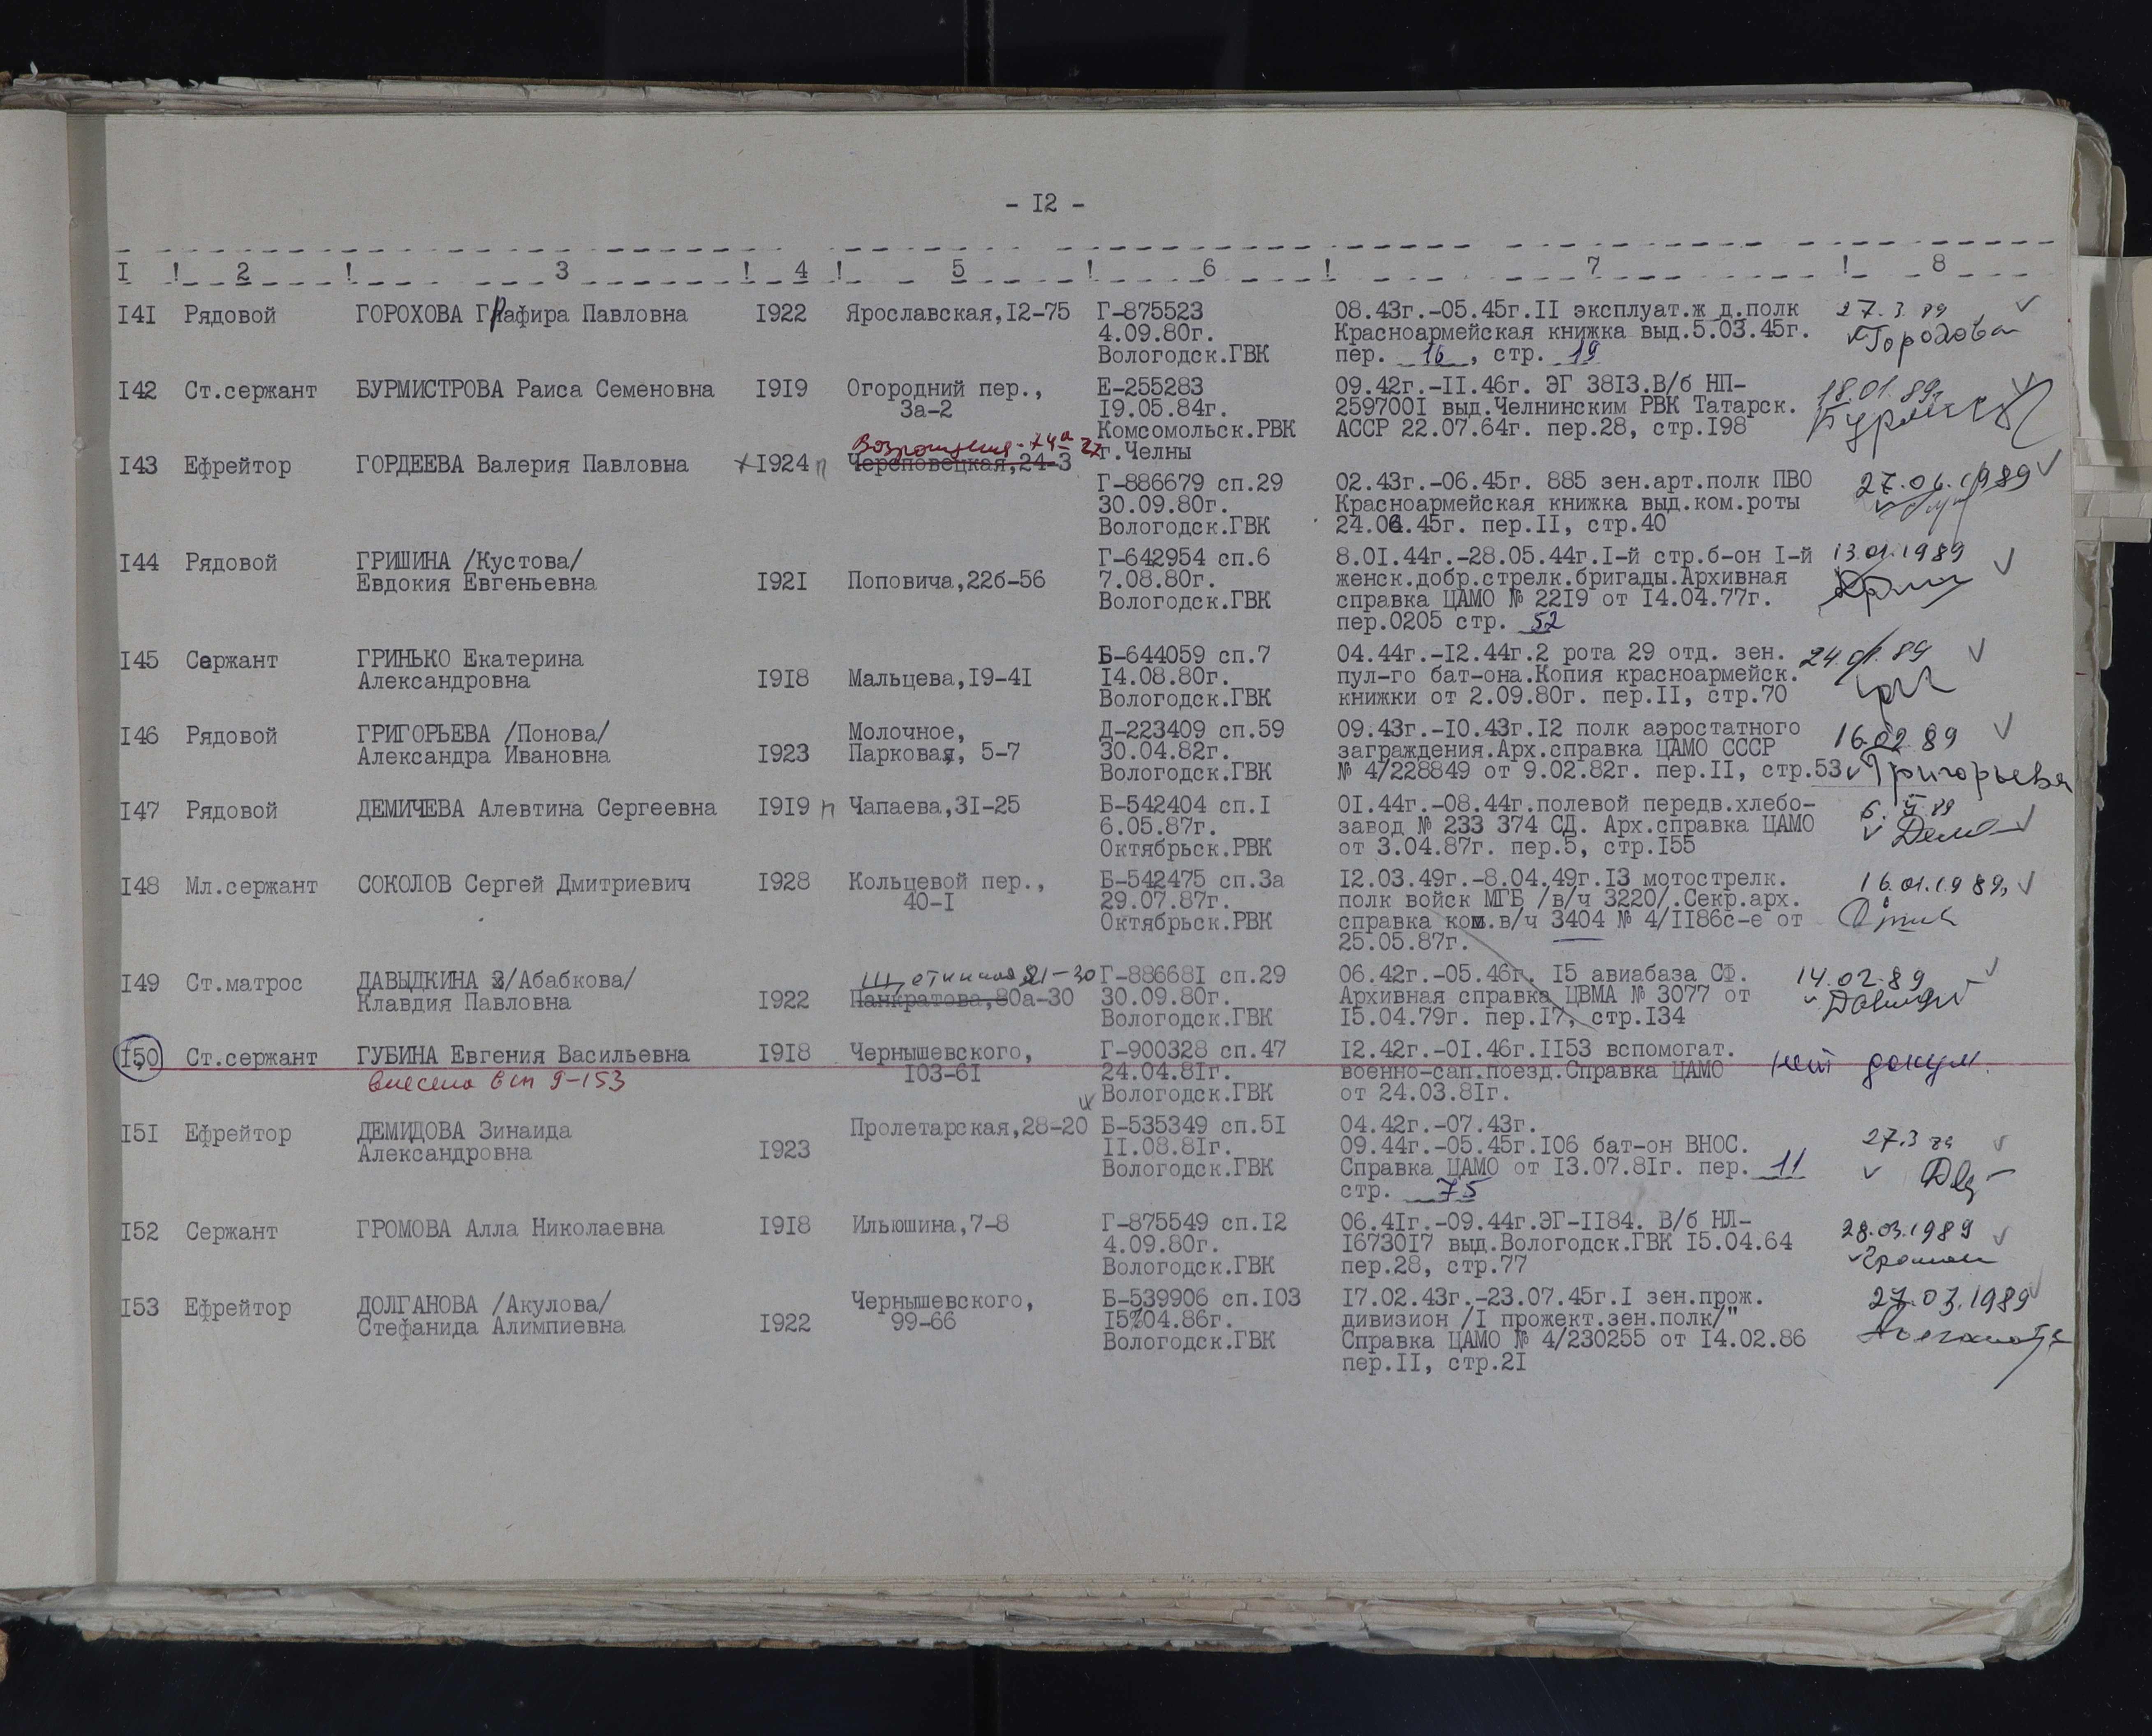 - I2 -
I ! 2 ! 3 ! 4 ! 5 ! 6 ! 7 ! 8
I4I Рядовой ГОРОХОВА ГРафира Павловна I922 Ярославская,I2-75 Г-875523 08.43г.-05.45г.II эксплуат.ж д.полк 27.3.89
4.09.80г. Красноармейская книжка выд.5.03.45г. Горохова
Вологодск.ГВК пер. 16, стр. 19
I42 Ст.сержант БУРМИСТРОВА Раиса Семеновна I9I9 Огородний пер., Е-255283 09.42г.-II.46г. ЭГ 38I3.В/б НП- 18.01.89г.
3а-2 I9.05.84г. 259700I выд.Челнинским РВК Татарск.
Комсомольск.РВК АССР 22.07.64г. пер.28, стр.I98
I43 Ефрейтор ГОРДЕЕВА Валерия Павловна I924 п Череповецкая,24-3 г.Челны
Г-886679 сп.29 02.43г.-06.45г. 885 зен.арт.полк ПВО 27.06.1989
30.09.80г. Красноармейская книжка выд.ком.роты
Вологодск.ГВК 24.06.45г. пер.II, стр.40
I44 Рядовой ГРИШИНА /Кустова/ Г-642954 сп.6 8.0I.44г.-28.05.44г.I-й стр.б-он I-й 13.01.1989
Евдокия Евгеньевна I92I Поповича,22б-56 7.08.80г. женск.добр.стрелк.бригады.Архивная
Вологодск.ГВК справка ЦАМО № 22I9 от I4.04.77г.
пер.0205 стр. 52
I45 Сержант ГРИНЬКО Екатерина Б-644059 сп.7 04.44г.-I2.44г.2 рота 29 отд. зен. 24.01.89
Александровна I9I8 Мальцева,I9-4I I4.08.80г. пул-го бат-она.Копия красноармейск.
Вологодск.ГВК книжки от 2.09.80г. пер.II, стр.70
I46 Рядовой ГРИГОРЬЕВА /Понова/ Молочное, Д-223409 сп.59 09.43г.-I0.43г.I2 полк аэростатного 16.02.89
Александра Ивановна I923 Парковая, 5-7 30.04.82г. заграждения.Арх.справка ЦАМО СССР
Вологодск.ГВК № 4/228849 от 9.02.82г. пер.II, стр.53 Григорьева
I47 Рядовой ДЕМИЧЕВА Алевтина Сергеевна I9I9 п Чапаева,3I-25 Б-542404 сп.I 0I.44г.-08.44г.полевой передв.хлебо-
6.05.87г. завод № 233 374 СД. Арх.справка ЦАМО
Октябрьск.РВК от 3.04.87г. пер.5, стр.I55
I48 Мл.сержант СОКОЛОВ Сергей Дмитриевич I928 Кольцевой пер., Б-542475 сп.3а I2.03.49г.-8.04.49г.I3 мотострелк. 16.01.1989
40-I 29.07.87г. полк войск МГБ /в/ч 3220/.Секр.арх.
Октябрьск.РВК справка ком.в/ч 3404 № 4/II86с-е от
25.05.87г.
I49 Ст.матрос ДАВЫДКИНА /Абабкова/ Щетинина 21-30 Г-88668I сп.29 06.42г.-05.46г. I5 авиабаза СФ. 14.02.89
Клавдия Павловна I922 Панкратова,80а-30 30.09.80г. Архивная справка ЦВМА № 3077 от
Вологодск.ГВК I5.04.79г. пер.I7, стр.I34
I50 Ст.сержант ГУБИНА Евгения Васильевна I9I8 Чернышевского, Г-900328 сп.47 I2.42г.-0I.46г.II53 вспомогат. нет докум.
внесена в сп 9-153 I03-6I 24.04.8Iг. военно-сан.поезд.Справка ЦАМО
Вологодск.ГВК от 24.03.8Iг.
I5I Ефрейтор ДЕМИДОВА Зинаида Пролетарская,28-20 Б-535349 сп.5I 04.42г.-07.43г.
Александровна I923 II.08.8Iг. 09.44г.-05.45г.I06 бат-он ВНОС. 27.3 89
Вологодск.ГВК Справка ЦАМО от I3.07.8Iг. пер. 11
стр. 75
I52 Сержант ГРОМОВА Алла Николаевна I9I8 Ильюшина,7-8 Г-875549 сп.I2 06.4Iг.-09.44г.ЭГ-II84. В/б НЛ- 28.03.1989
4.09.80г. I6730I7 выд.Вологодск.ГВК I5.04.64
Вологодск.ГВК пер.28, стр.77
I53 Ефрейтор ДОЛГАНОВА /Акулова/ Чернышевского, Б-539906 сп.I03 I7.02.43г.-23.07.45г.I зен.прож. 27.03.1989
Стефанида Алимпиевна I922 99-66 I5%04.86г. дивизион /I прожект.зен.полк/"
Вологодск.ГВК Справка ЦАМО № 4/230255 от I4.02.86
пер.II, стр.2I